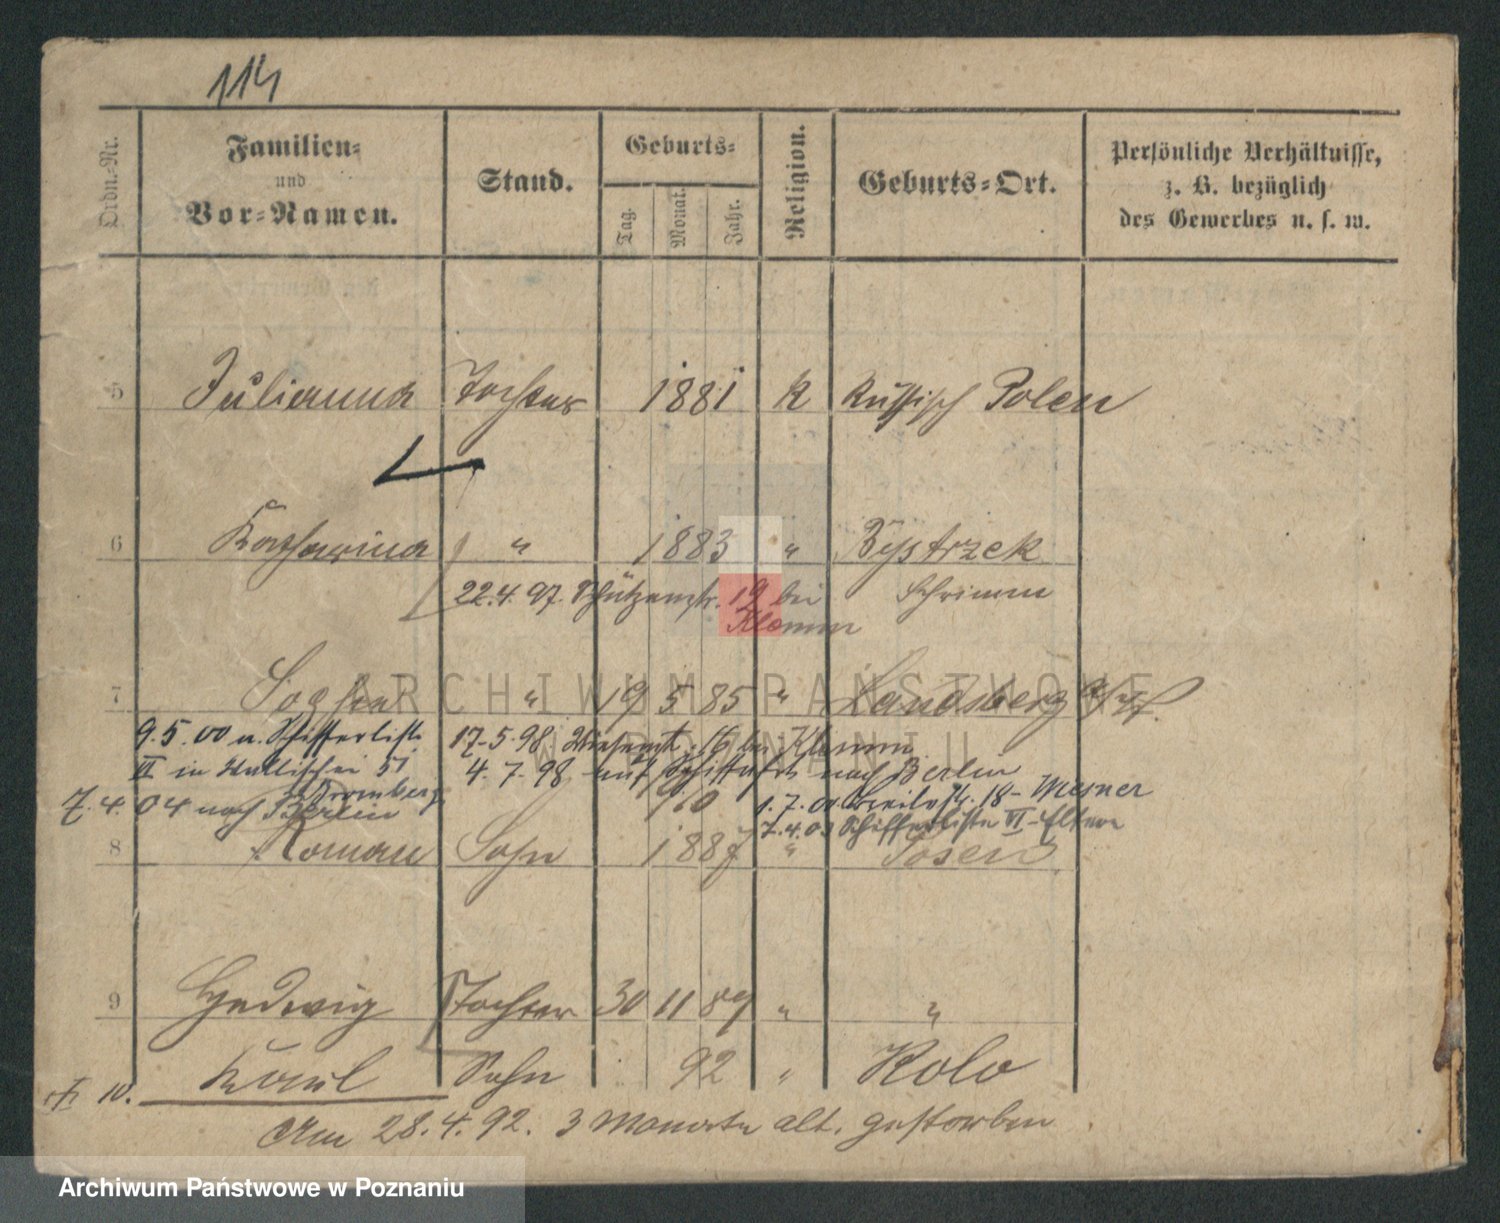 114
Ordn.-Nr. Familien- und Vor-Namen. Stand. Geburts- Tag. Monat. Jahr. Religion. Geburts-Ort. Persönliche Verhältnisse, z. B. bezüglich des Gewerbes u. s. w.
5 Julianna Tochter 1881 K Russisch Polen
6 Katharina " 1883 " Bystrzek
22.4.97. Schützenstr. 19 bei Schrimm
Klemm
7 " 19 5 85 " Landsberg
9.5.00 u. Schifferliste 17.5.98 16 bei Klemm
VI in 51 4.7.98 auf nach Berlin
Bromberg
7.4.04 nach Berlin 1.7.01 18 - Mesner
7.4.03 Schifferliste VI - Eltern
8 Roman Sohn 1887 " Posen
9 Hedwig Tochter 30 11 89 " "
10. Karl Sohn 92 " Kolo
Am 28.4.92. 3 Monate alt. gestorben
ARCHIWUM PAŃSTWOWE
W POZNANIU
Archiwum Państwowe w Poznaniu